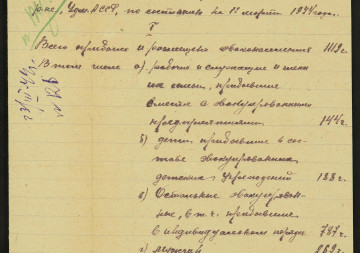 оне, Удм. АССР, по состоянию на 1º марта 1944 года.
I
Всего прибыло и размещено эваконаселения 1112 ч.
В том числе а) рабочих и служащих и член
их семей, прибывшие
вместе с эвакуированными
предприятиями. 144 ч.
б) дети, прибывшие в со-
ставе эвакуированных
детских учреждений 188 ч.
в) Остальные эвакуирован-
ные, в т. ч. прибывшие
в индивидуальном порядке 787 ч.
г) мужчин 262 ч.